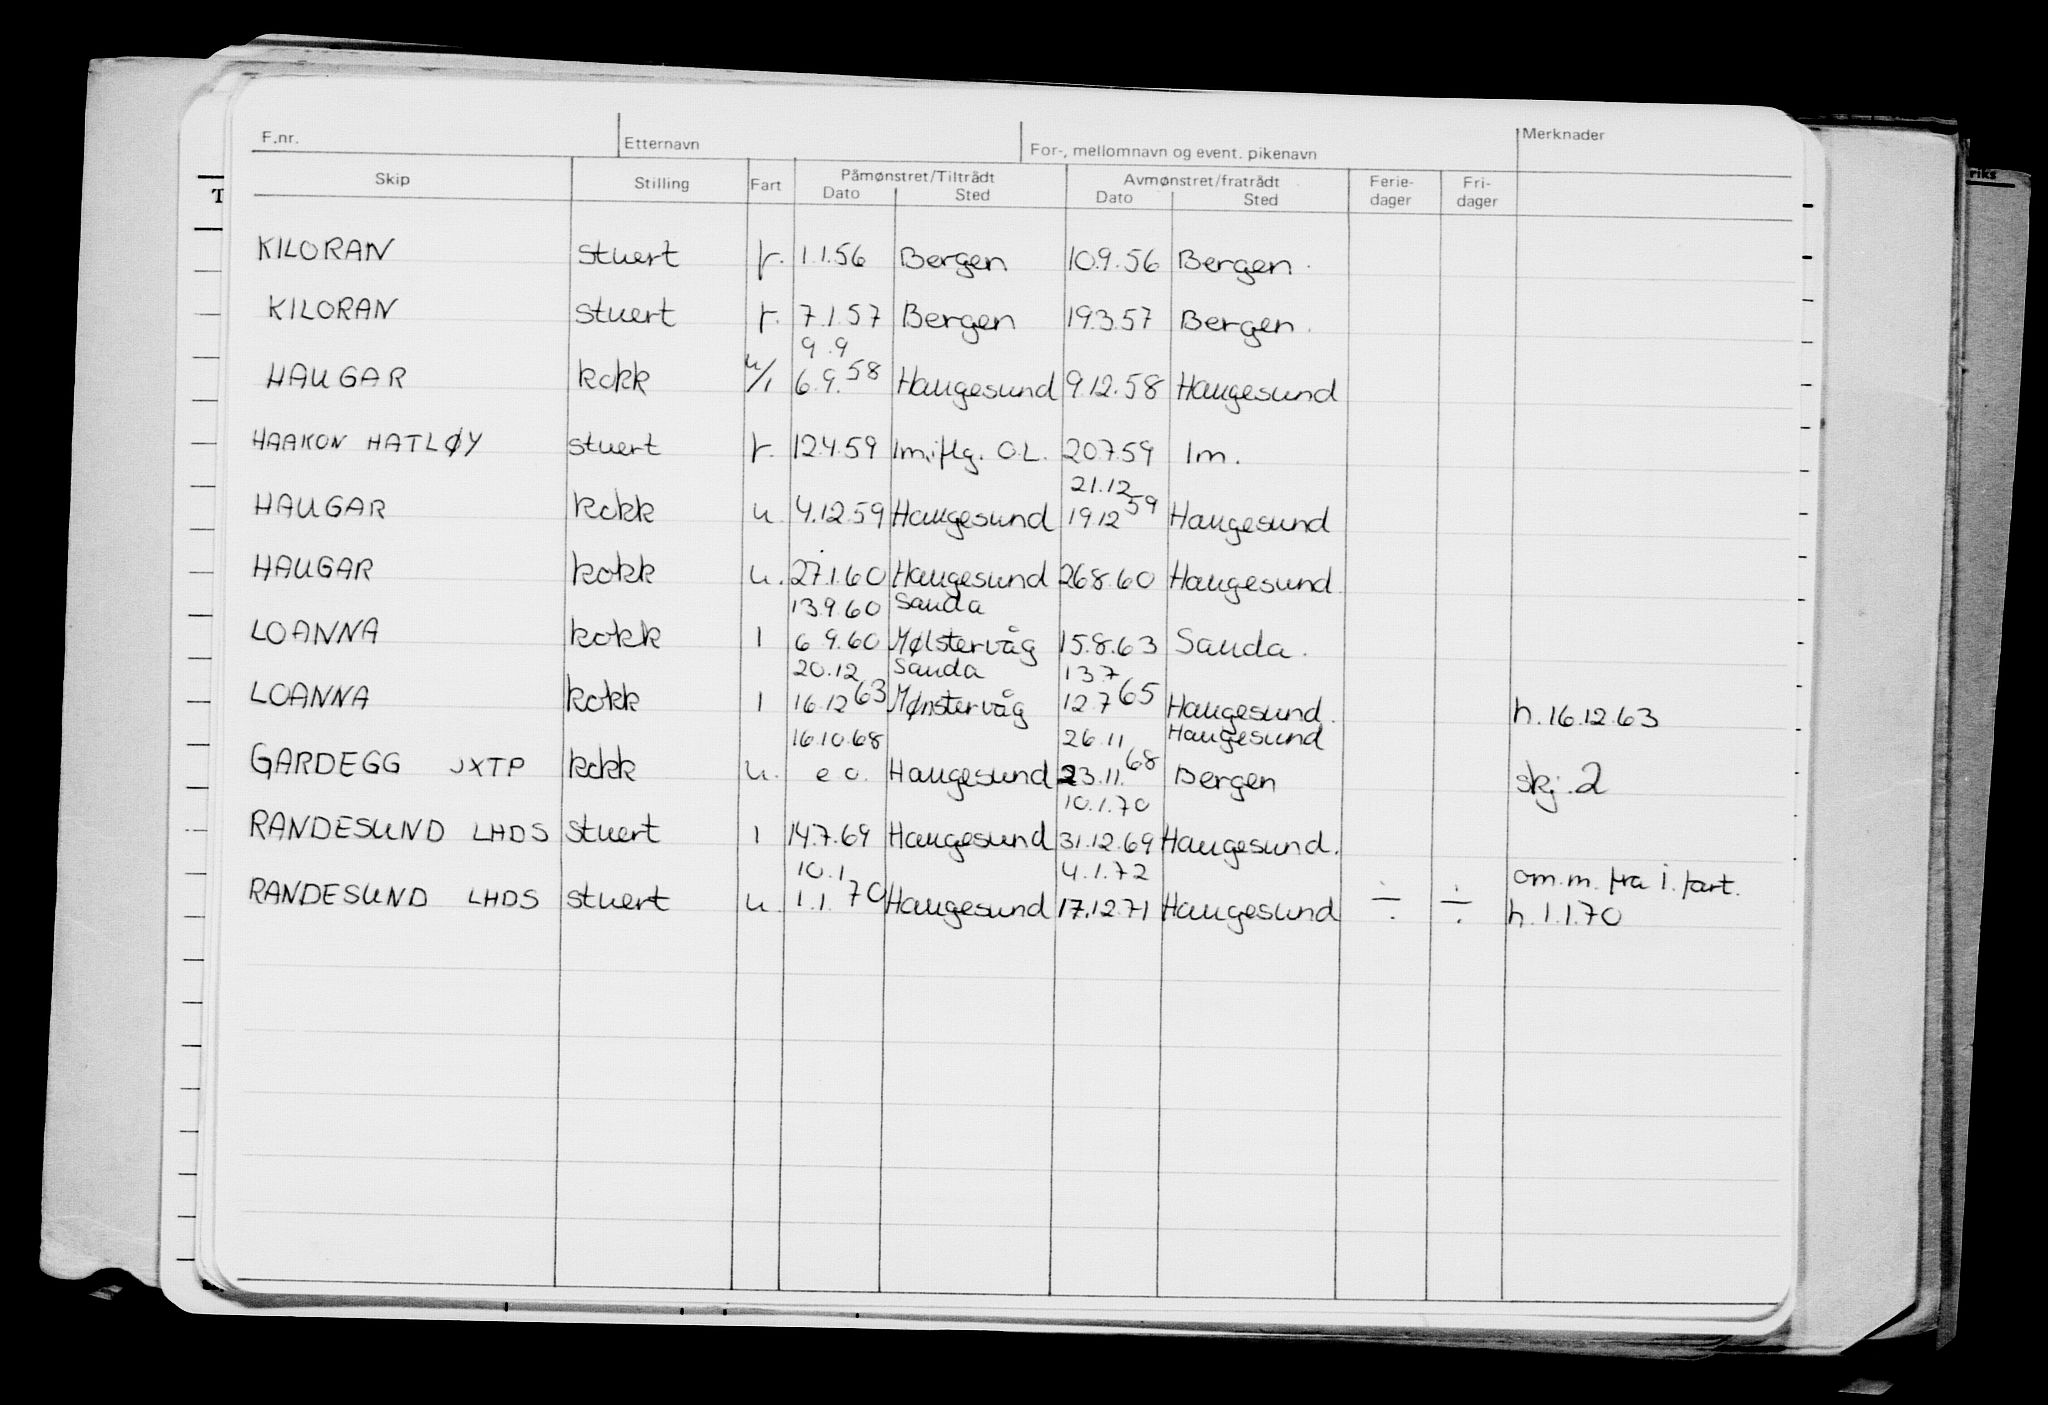 F.nr. Etternavn For-, mellomnavn og event. pikenavn Merknader
Skip Stilling Fart Påmønstret/Tiltrådt Avmønstret/fratrådt Ferie- Fri-
Dato Sted Dato Sted dager dager
KILORAN stuert f. 1.1.56 Bergen 10.9.56 Bergen.
KILORAN stuert f. 7.1.57 Bergen 19.3.57 Bergen.
9.9
HAUGAR kokk u/i 6.9.58 Haugesund 9.12.58 Haugesund
HAAKON HATLØY stuert f. 12.4.59 Im.iflg. O.L. 20.7.59 Im.
21.12
HAUGAR kokk u 4.12.59 Haugesund 19.12 59 Haugesund
HAUGAR kokk u. 27.1.60 Haugesund 26.8.60 Haugesund.
13.9.60 Sauda
LOANNA kokk I 6.9.60 Mølstervåg 15.8.63 Sauda.
20.12 Sauda 13.7
LOANNA kokk I 16.12 63 Mønstervåg 12.7 65 Haugesund. h.16.12.63
16.10.68 26.11 Haugesund
GARDEGG JXTP kokk u. e o. Haugesund 23.11.68 Bergen skj.2
10.1.70
RANDESUND LHDS stuert I 14.7.69 Haugesund 31.12.69 Haugesund.
10.1 4.1.72 om.m. fra i.fart.
RANDESUND LHDS stuert u. 1.1.70 Haugesund 17.12.71 Haugesund ÷ ÷ h.1.1.70
T
riks